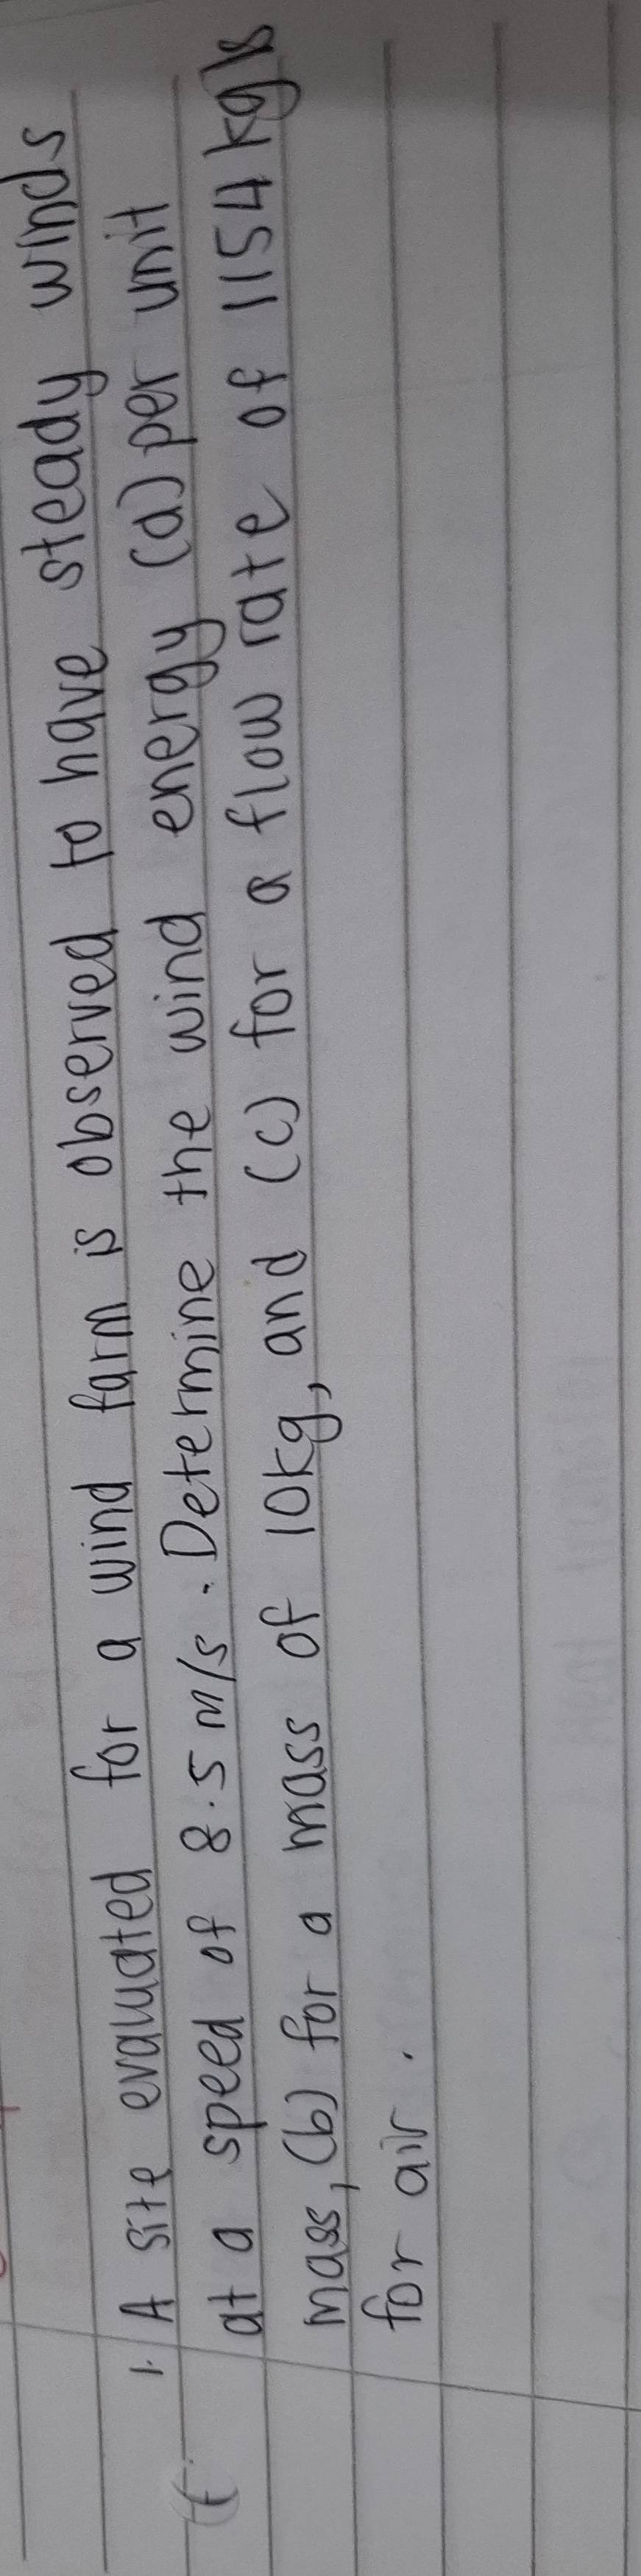 1. A site evaluated for a wind farm is observed to have steady winds
at a speed of 8.5 m/s. Determine the wind energy (a) per unit
mass, (b) for a mass of 10kg, and (c) for a flow rate of 1154 kg/s
for air.